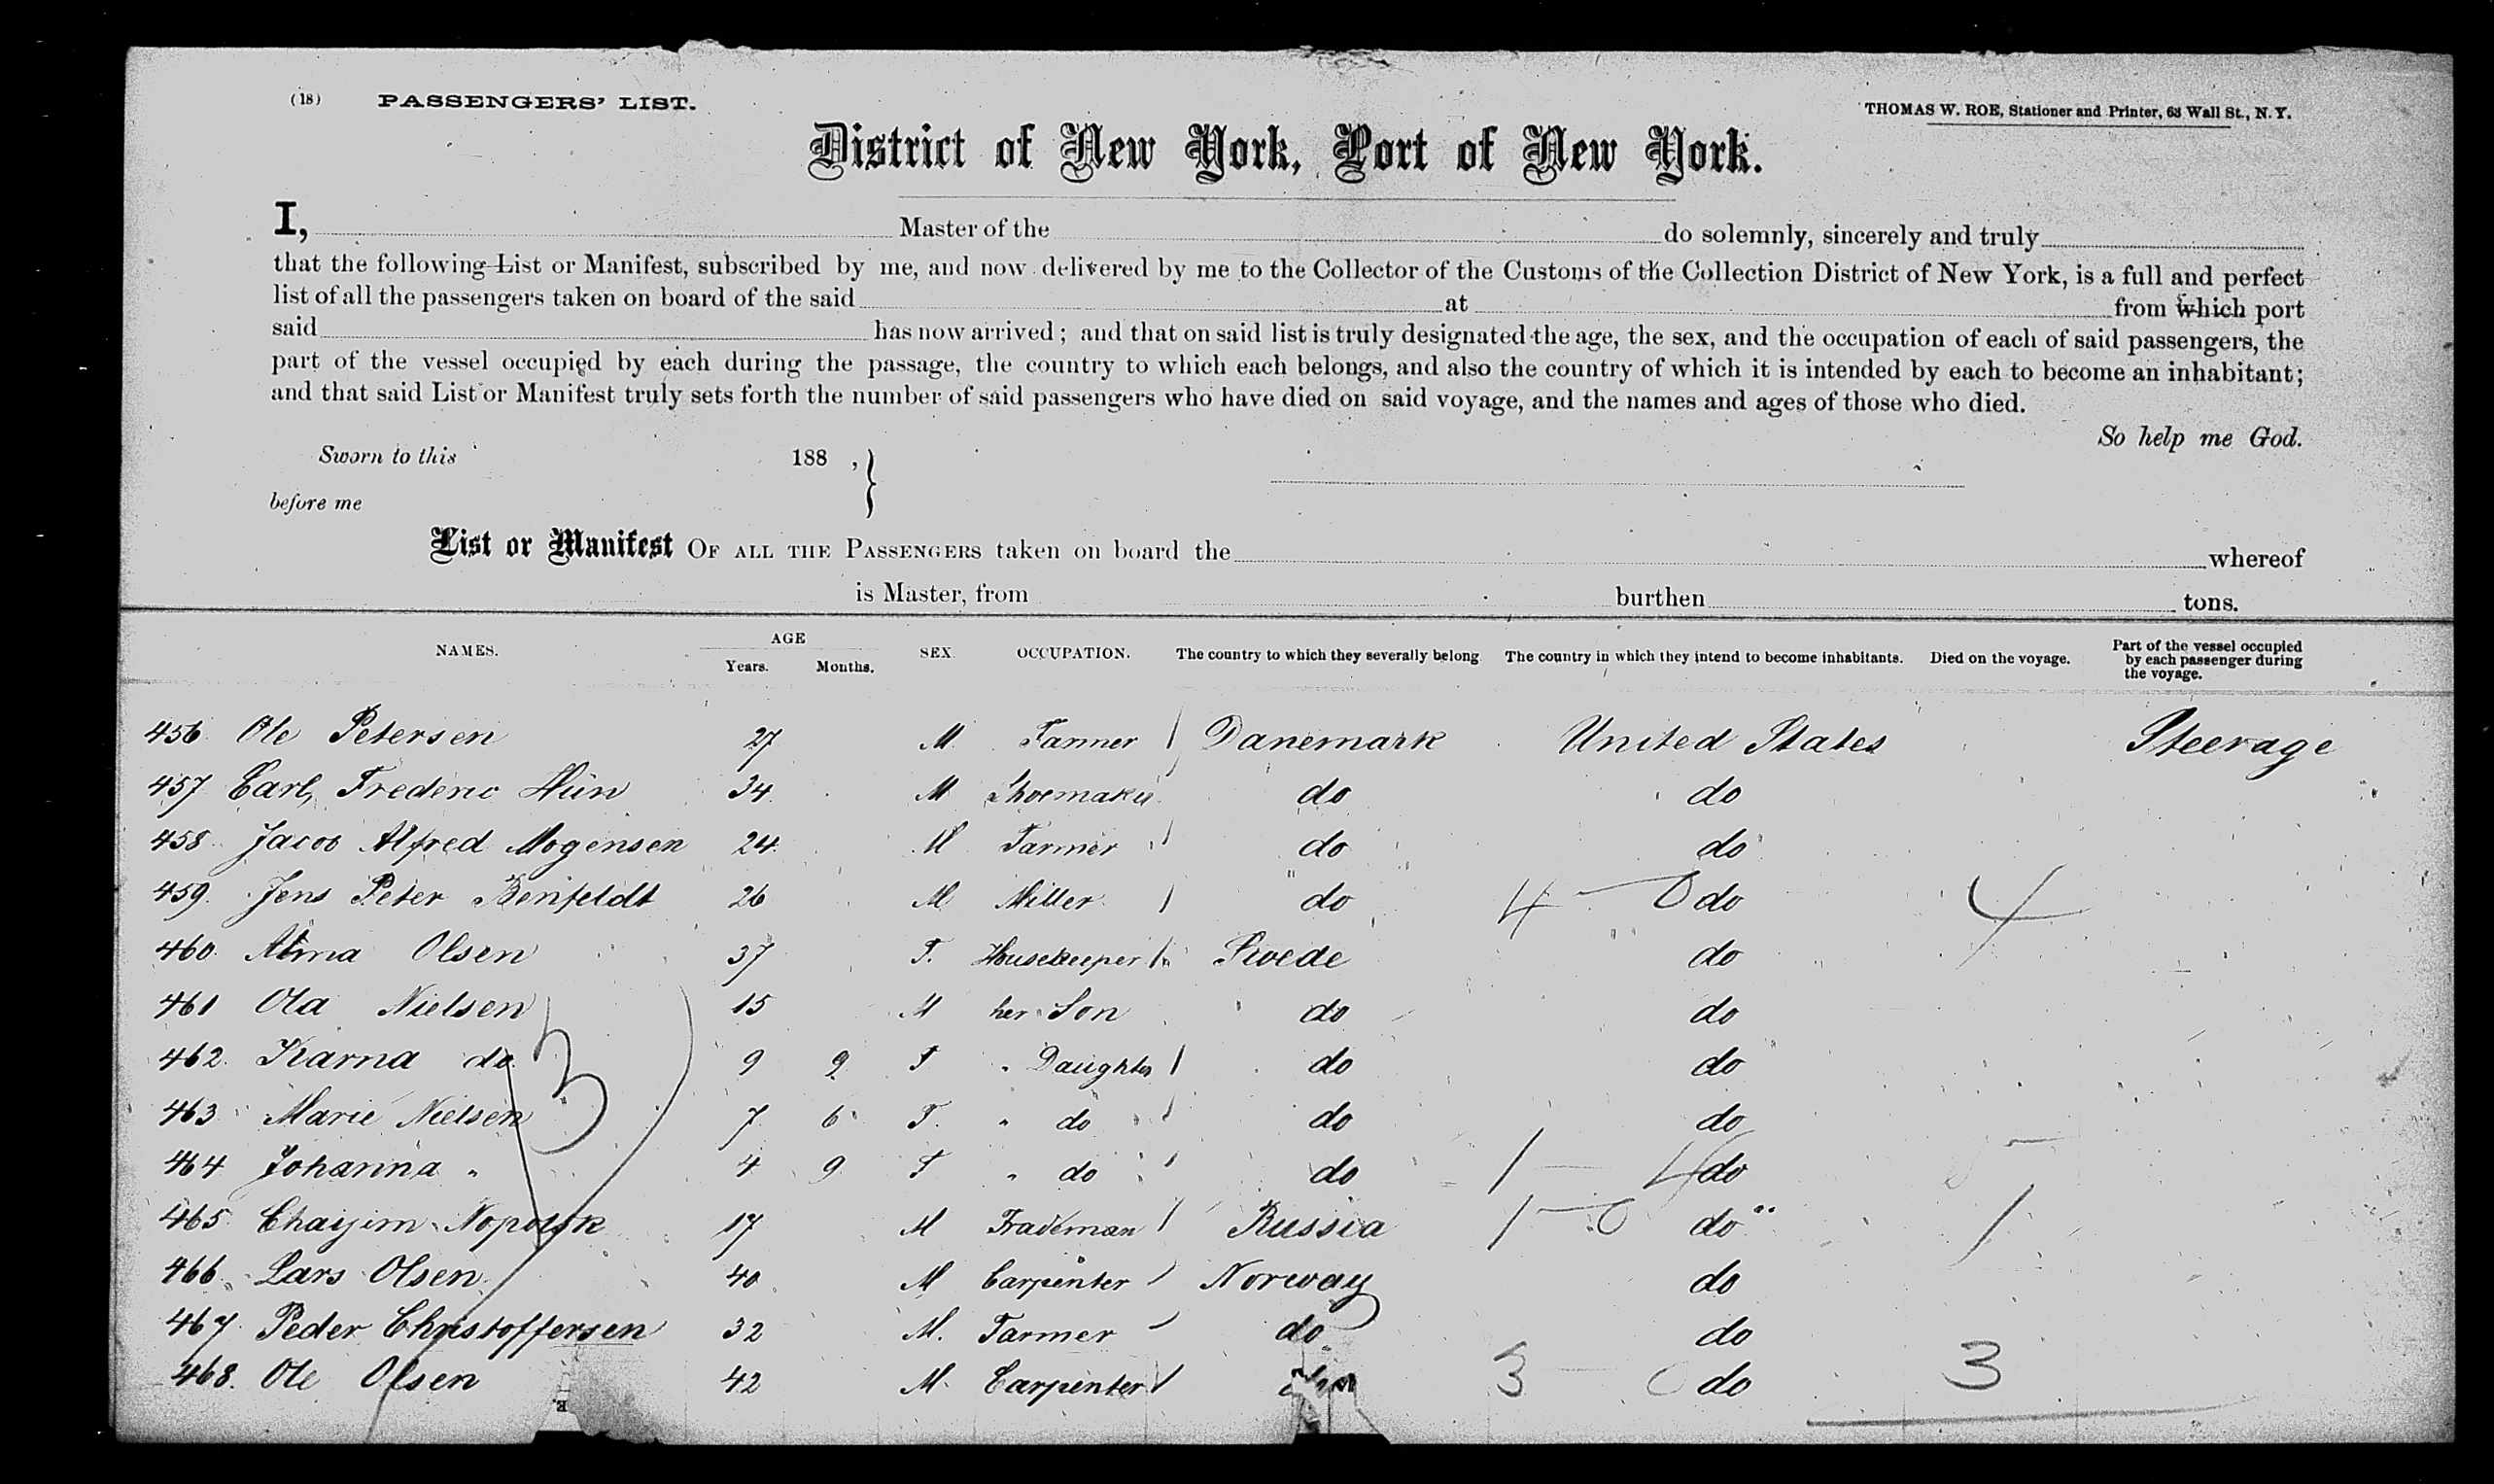 (18) PASSENGERS' LIST.
THOMAS W. ROE, Stationer and Printer, 63 Wall St., N. Y.
District of New York, Port of New York.
I, Master of the do solemnly, sincerely and truly
that the following List or Manifest, subscribed by me, and now delivered by me to the Collector of the Customs of the Collection District of New York, is a full and perfect
list of all the passengers taken on board of the said at from which port
said has now arrived; and that on said list is truly designated the age, the sex, and the occupation of each of said passengers, the
part of the vessel occupied by each during the passage, the country to which each belongs, and also the country of which it is intended by each to become an inhabitant;
and that said List or Manifest truly sets forth the number of said passengers who have died on said voyage, and the names and ages of those who died.
So help me God.
Sworn to this 188 , }
before me
List or Manifest OF ALL THE PASSENGERS taken on board the whereof
is Master, from burthen tons.
NAMES. AGE Years. Months. SEX. OCCUPATION. The country to which they severally belong. The country in which they intend to become inhabitants. Died on the voyage. Part of the vessel occupied by each passenger during the voyage.
456. Ole Petersen 27 M. Tanner Danemark United States Steerage
457 Carl, Frederic 34 M Shoemaker do do
458. Jacob Alfred Mogensen 24. M Farmer do do
459. Jens Peter Benfeldt 26 M. Miller do 4 0 do 4
460. Alma Olsen 37 F. Housekeeper Swede do
461 Ola Nielsen 15 M her Son do do
462. Karna do 9 9 F " Daughter do do
463 Marie Nielsen 7 6 F. " do do do
464 Johanna " 4 9 F " do do 1 4 do
465. Chayim 17 M Trademan Russia 1 0 do 1
466. Lars Olsen. 40 M Carpenter Norway do
467. Peder Christoffersen 32 M. Farmer do do
468. Ole Olsen 42 M. Carpenter 3 0 do 3
3